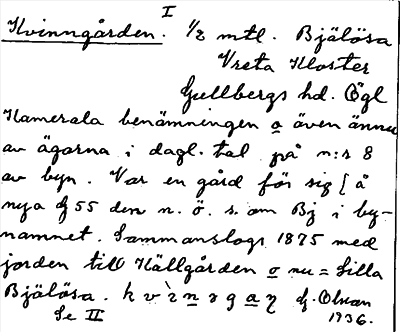 I
Kvinngården. 1/2 mtl. Bjälösa
Vreta Kloster
Gullbergs hd. Ögl
Kamerala benämningen o även ännu
av ägarna i dagl. tal på n:r 8
av byn. Var en gård för sig [å
nya ek 55 den n. ö. s. om Bj i by-
namnet. Sammanslogs 1875 med
jorden till Källgården o nu = Lilla
Bjälösa. kvìnngaṇ
Se II
1936.